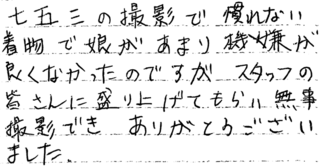 七五三の撮影で 慣れない
着物で娘があまり機嫌が
良くなかったのですが スタッフの
皆さんに盛り上げてもらい無事
撮影でき ありがとうござい
ました。